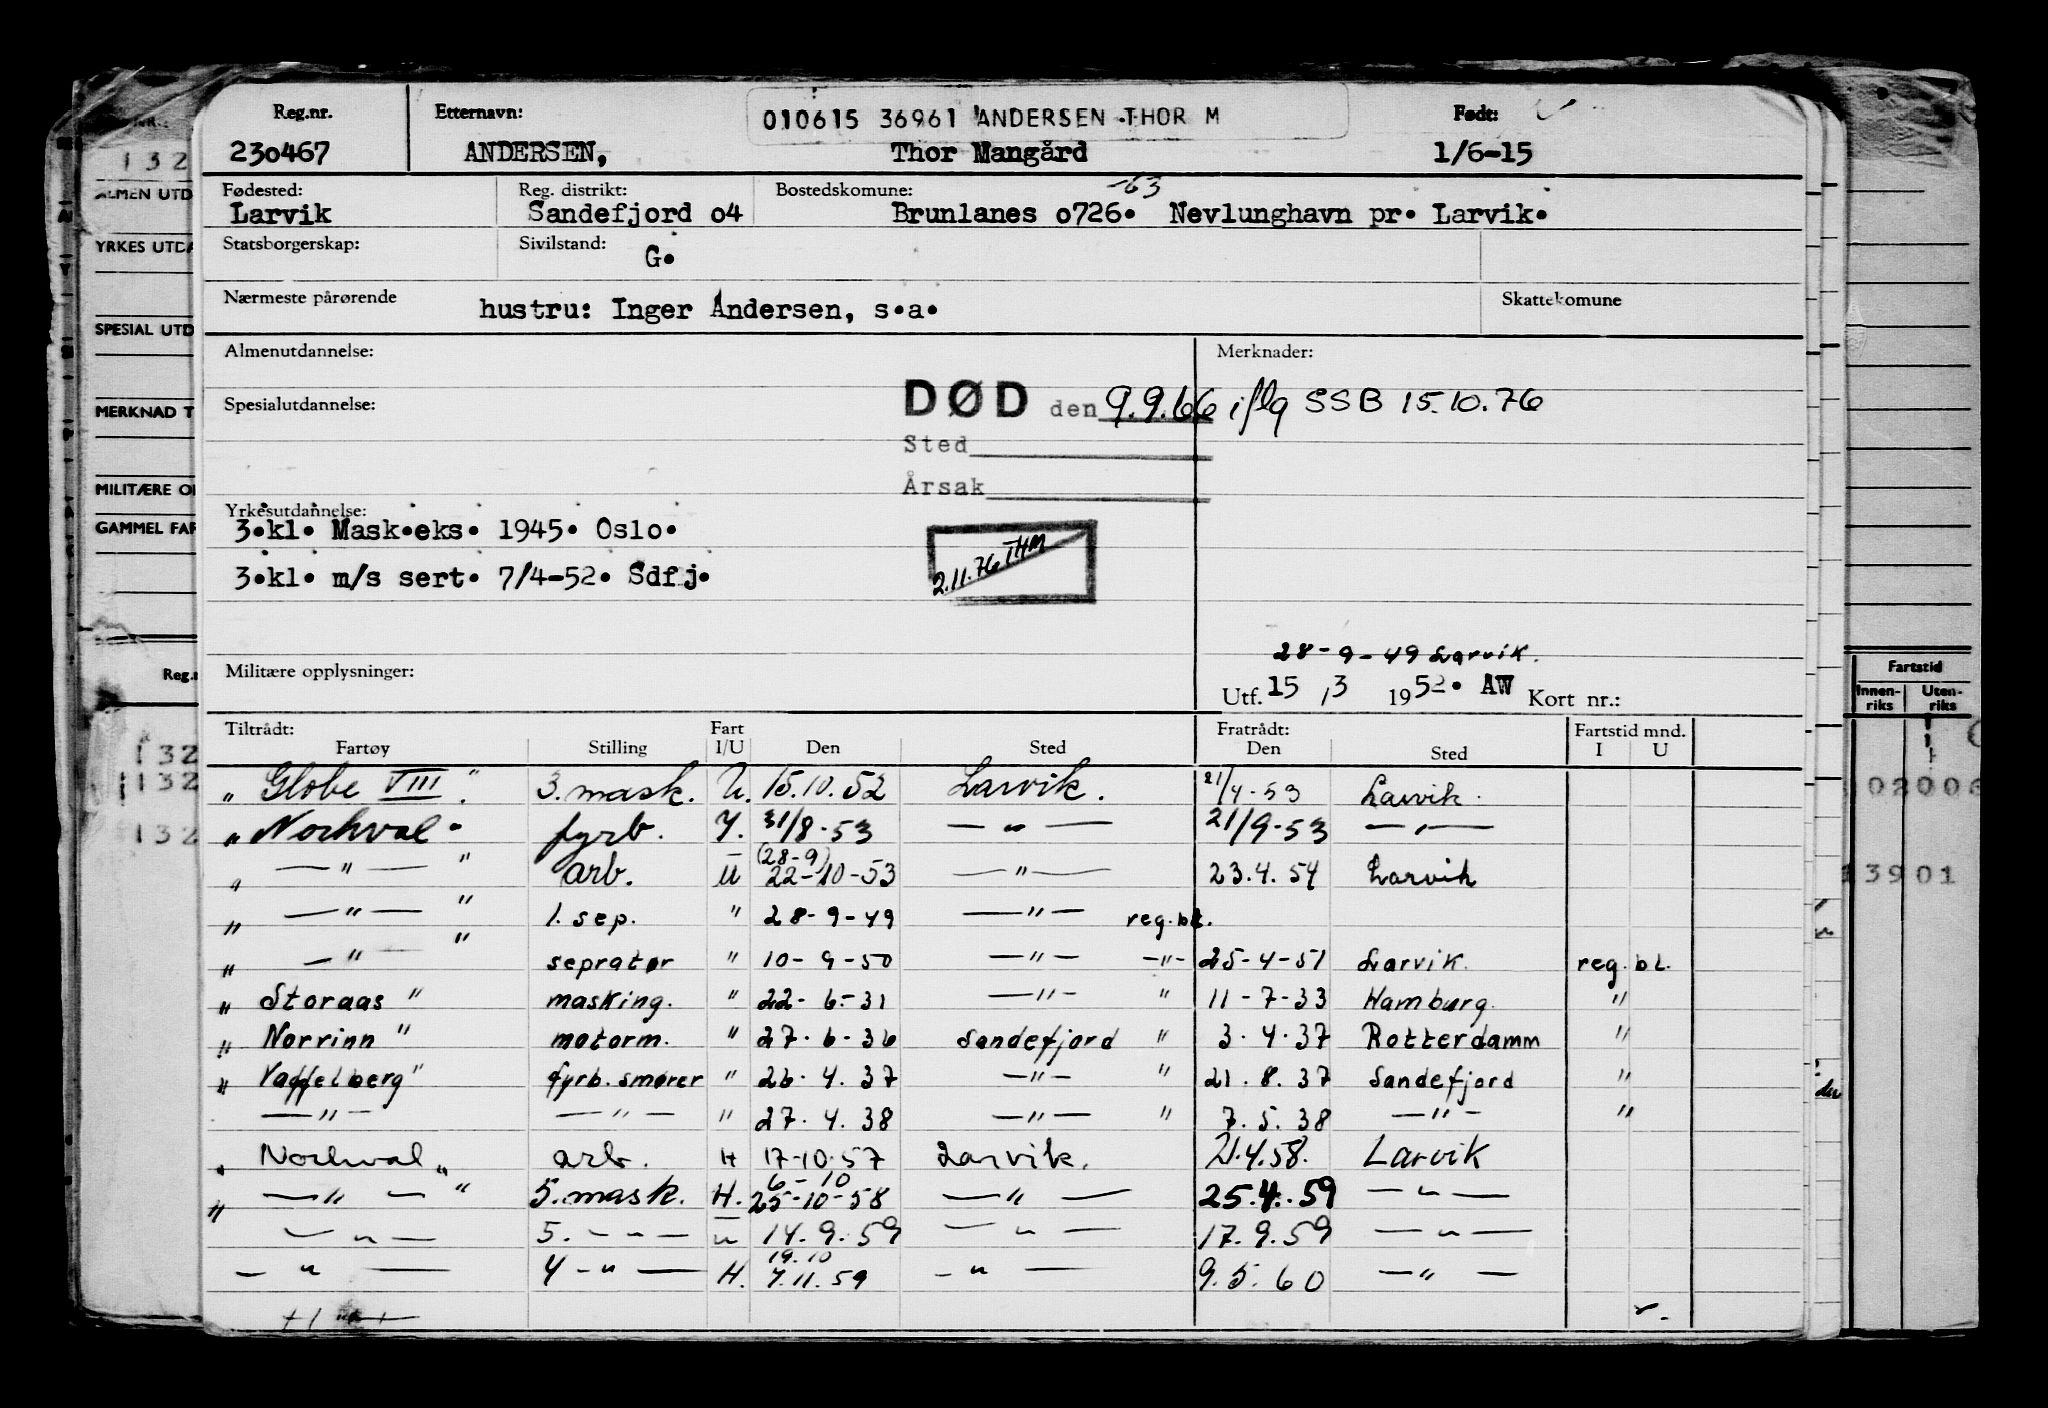 Reg.nr. Etternavn: 010615 36961 ANDERSEN THOR M Født:
230467 ANDERSEN, Thor Mangård 1/6-15
Fødested: Reg. distrikt: Bostedskomune: -63
Larvik Sandefjord 04 Brunlanes 0726. Nevlunghavn pr. Larvik.
Statsborgerskap: Sivilstand: G.
Nærmeste pårørende hustru: Inger Andersen, s.a. Skattekomune
Almenutdannelse: Merknader:
Spesialutdannelse: DØD den 9.9.66 iflg SSB 15.10.76
Sted
Årsak
Yrkesutdannelse:
3.kl. Mask.eks. 1945. Oslo.
3.kl. m/s sert. 7/4-52. Sdfj.
2.11.76 THM
28-9-49 Larvik.
Militære opplysninger: Utf. 15 / 3 1952. AW Kort nr.:
Tiltrådt: Fart Fratrådt: Fartstid mnd.
Fartøy Stilling I/U Den Sted Den Sted I U
" Globe VIII " 3. mask. U. 15.10.52 Larvik. 21/4-53 Larvik.
" Norhval " fyrb. I. 31/8-53 — " — 21/9-53 — " —
" — " — " arb. U (28-9) 22-10-53 — " — 23.4.54 Larvik
" — " — " 1. sep. " 28-9-49 — " — reg.bl.
" — " — "seprator " 10-9-50 — " — — " — 25-4-51 Larvik. reg. bl.
" Storaas " masking. " 22-6-31 — " — " 11-7-33 Hamburg. "
" Norrinn " motorm. " 27.6-36 Sandefjord " 3.4.37 Rotterdamm "
" Vaffelberg " fyrb. smører " 26.4.37 — " — " 21.8.37 Sandefjord "
— " — — " — " 27.4.38 — " — " 7.5.38 — " — "
" Norhval " arb. H 17-10-57 Larvik. 21.4.58. Larvik
" — " — " 5. mask. H. 6-10 25-10-58 — " — 25.4.59 — " —
— " — 5. — " — u 14.9.59 — " — 17.9.59 — " —
— " — 4 — " — H. 19.10 7.11.59 — " — 9.5.60 — " —
132
ALMEN UTD
YRKES UTDA
SPESIAL UTD
MERKNAD T
MILITÆRE O
GAMMEL FAR
Reg.
132
132
132
Fartstid
Innen-riks Uten-riks
02006
13901